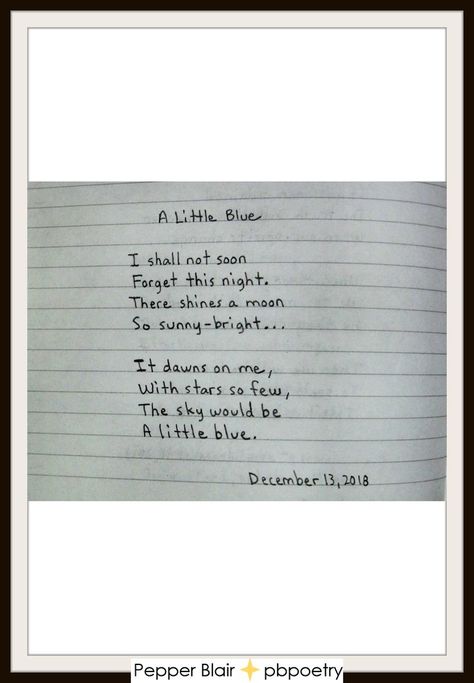 A Little Blue
I shall not soon
Forget this night.
There shines a moon
So sunny-bright...
It dawns on me,
With stars so few,
The sky would be
A little blue.
December 13, 2018
Pepper Blair ✨ pbpoetry